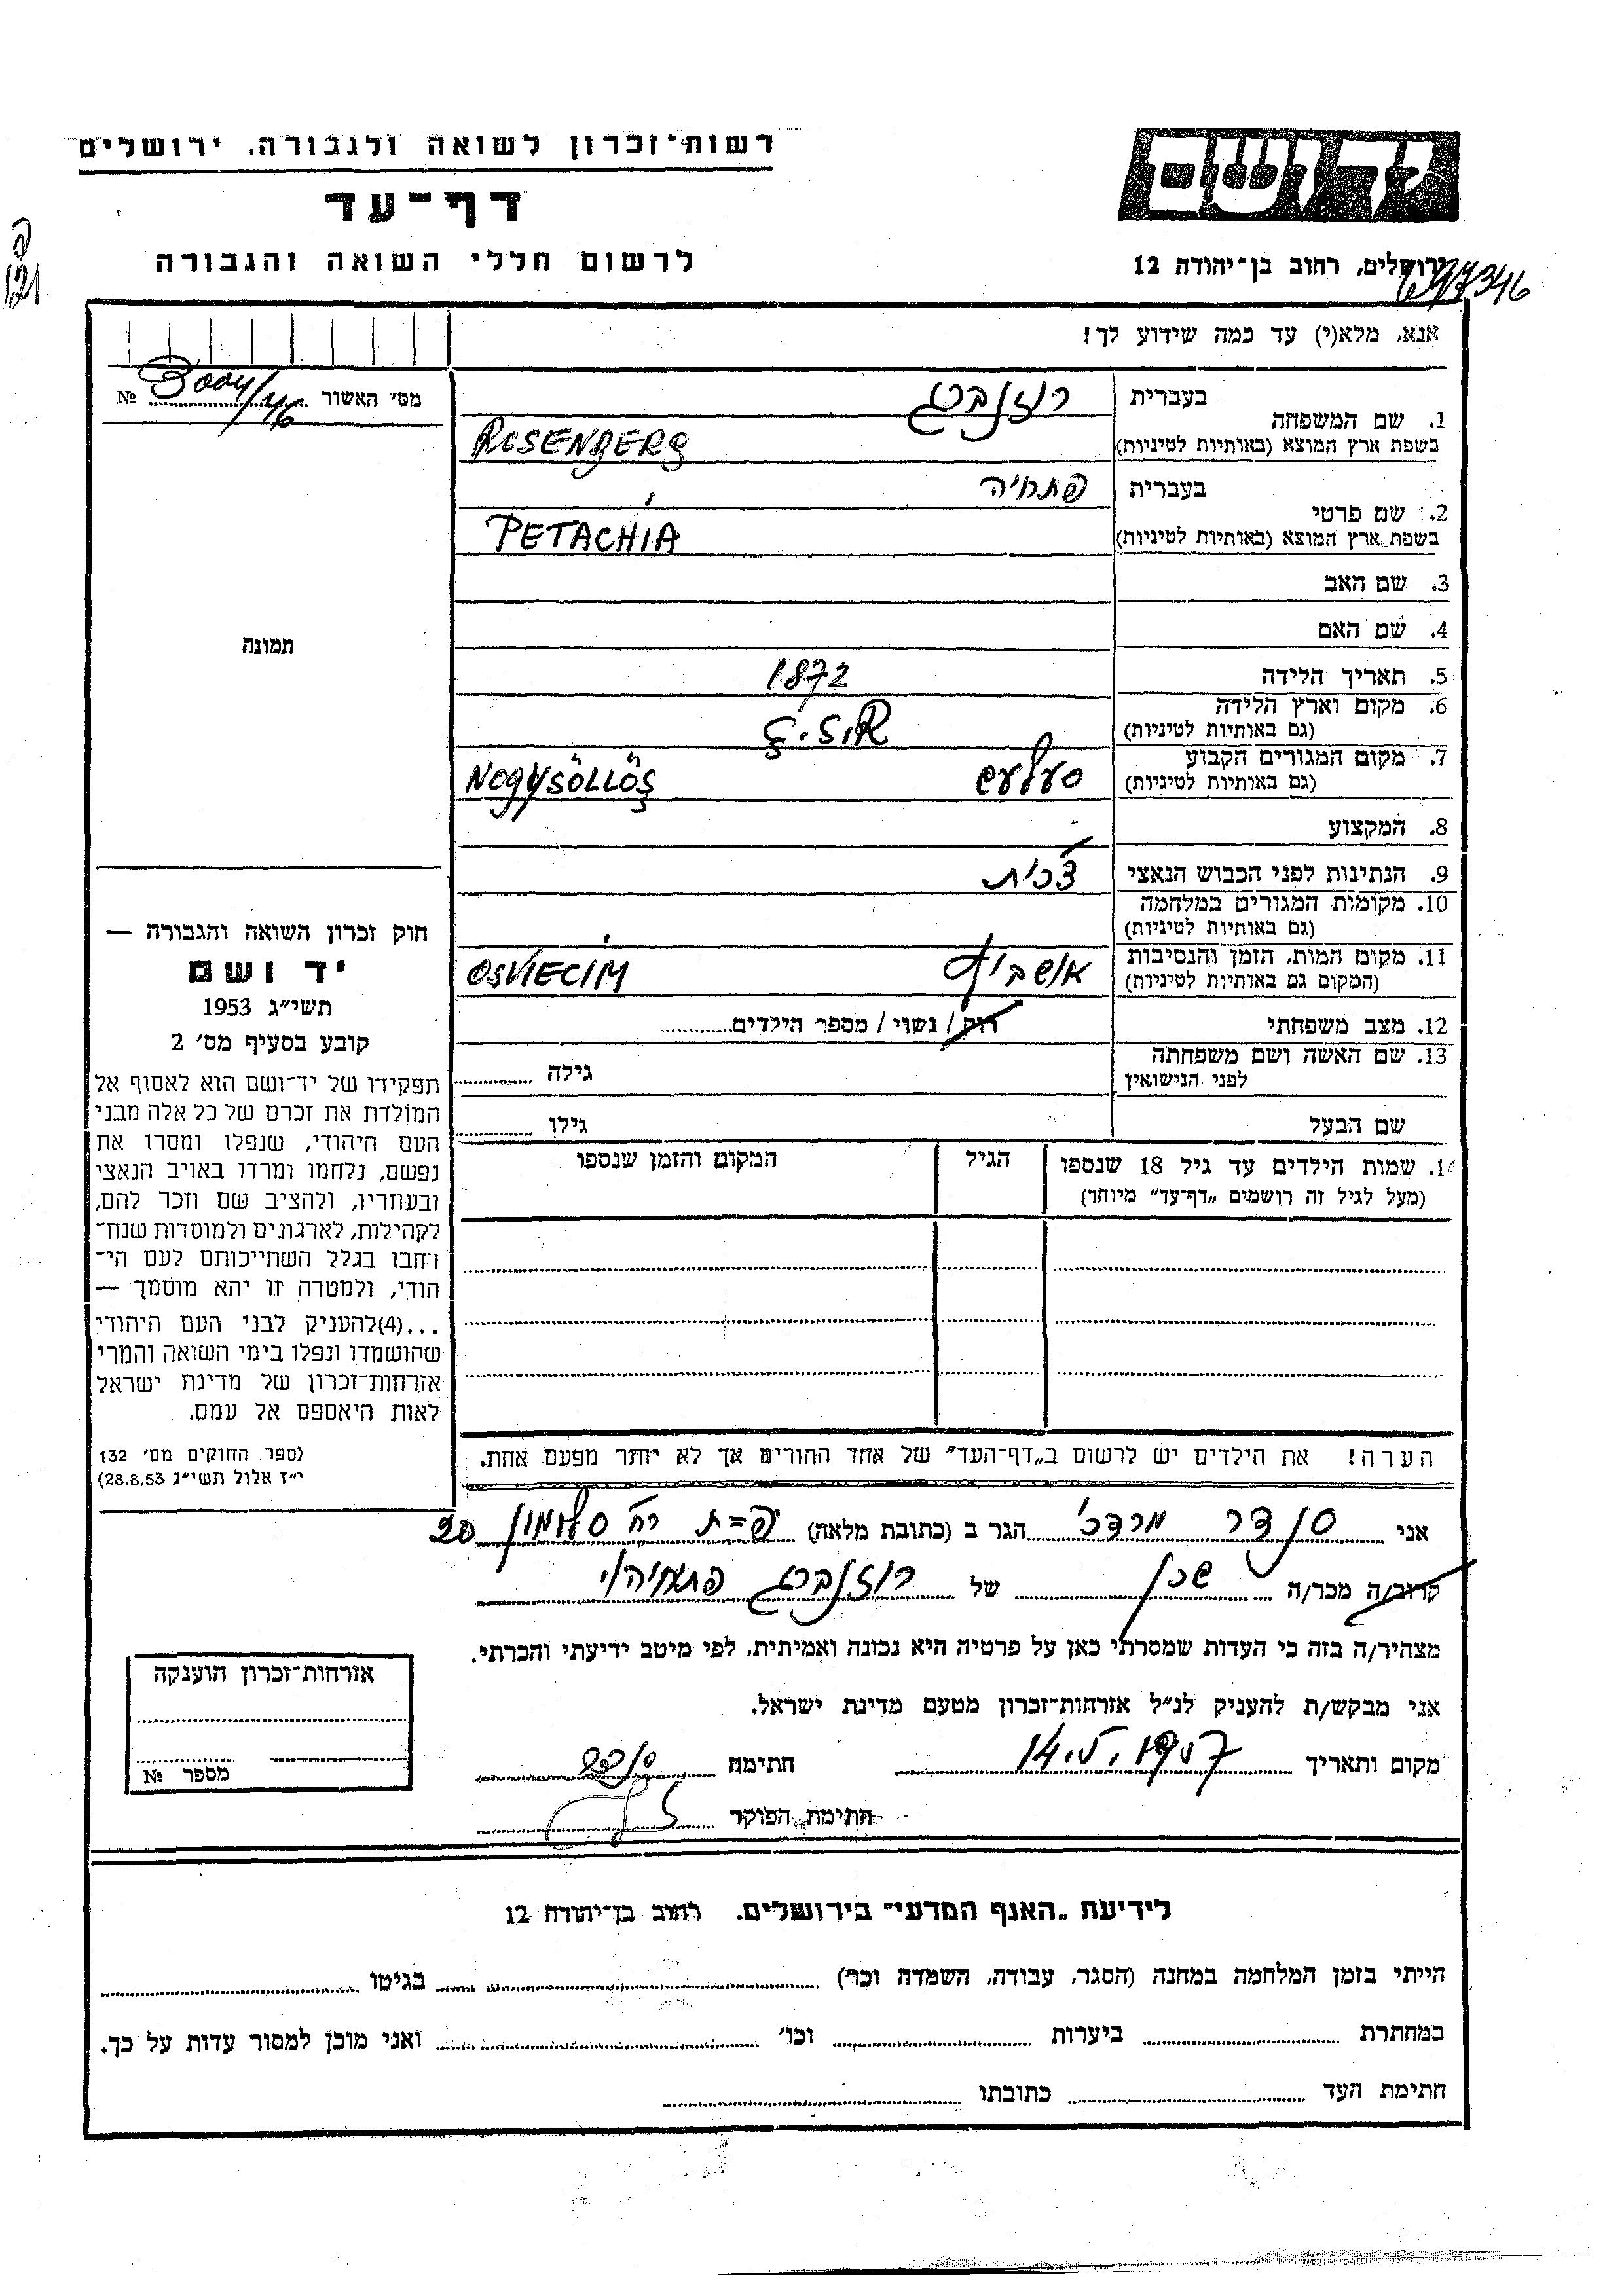 רשות־זכרון לשואה ולגבורה, ירושלים
דף־עד
לרשום חללי השואה והגבורה
יד ושם
ירושלים, רחוב בן־יהודה 12
אנא, מלא(י) עד כמה שידוע לך!
מס׳ האשור №
1. שם המשפחה
בעברית רוזנברג
בשפת ארץ המוצא (באותיות לטיניות) ROSENBERG
2. שם פרטי
בעברית פתחיה
בשפת ארץ המוצא (באותיות לטיניות) PETACHIA
3. שם האב
4. שם האם
5. תאריך הלידה 1872
6. מקום וארץ הלידה Č.S.R
(גם באותיות לטיניות)
7. מקום המגורים הקבוע סעלעש NAGYSÖLLÖS
(גם באותיות לטיניות)
8. המקצוע
9. הנתינות לפני הכבוש הנאצי צ׳כית
10. מקומות המגורים במלחמה
(גם באותיות לטיניות)
11. מקום המות, הזמן והנסיבות אושביץ OSVIECIM
(המקום גם באותיות לטיניות)
12. מצב משפחתי רוק / נשוי / מספר הילדים
13. שם האשה ושם משפחתה
לפני הנישואין גילה
שם הבעל גילו
14. שמות הילדים עד גיל 18 שנספו הגיל המקום והזמן שנספו
(מעל לגיל זה רושמים „דף־עד” מיוחד)
הערה! את הילדים יש לרשום ב„דף־העד” של אחד ההורים אך לא יותר מפעם אחת.
תמונה
חוק זכרון השואה והגבורה —
יד ושם
תשי״ג 1953
קובע בסעיף מס׳ 2
תפקידו של יד־ושם הוא לאסוף אל
המולדת את זכרם של כל אלה מבני
העם היהודי, שנפלו ומסרו את
נפשם, נלחמו ומרדו באויב הנאצי
ובעוזריו, ולהציב שם וזכר להם,
לקהילות, לארגונים ולמוסדות שנח־
רחבו בגלל השתייכותם לעם הי־
הודי, ולמטרה זו יהא מוסמך —
...(4)להעניק לבני העם היהודי
שהושמדו ונפלו בימי השואה והמרי
אזרחות־זכרון של מדינת ישראל
לאות היאספם אל עמם.
(ספר החוקים מס׳ 132
י״ז אלול תשי״ג 28.8.53)
אני סנדר מרדכי הגר ב (כתובת מלאה) פ=ת רח׳ סלומון 20
קרוב/ה מכר/ה שכן של רוזנברג פתחיהו
מצהיר/ה בזה כי העדות שמסרתי כאן על פרטיה היא נכונה ואמיתית, לפי מיטב ידיעתי והכרתי.
אני מבקש/ת להעניק לנ״ל אזרחות־זכרון מטעם מדינת ישראל.
מקום ותאריך 14.5.1957 חתימה
חתימת הפוקד
אזרחות־זכרון הוענקה
מספר №
לידיעת „האגף המדעי” בירושלים, רחוב בן־יהודה 12
הייתי בזמן המלחמה במחנה (הסגר, עבודה, השמדה וכו׳) בגיטו
במחתרת ביערות וכו׳ ואני מוכן למסור עדות על כך.
חתימת העד כתובתו